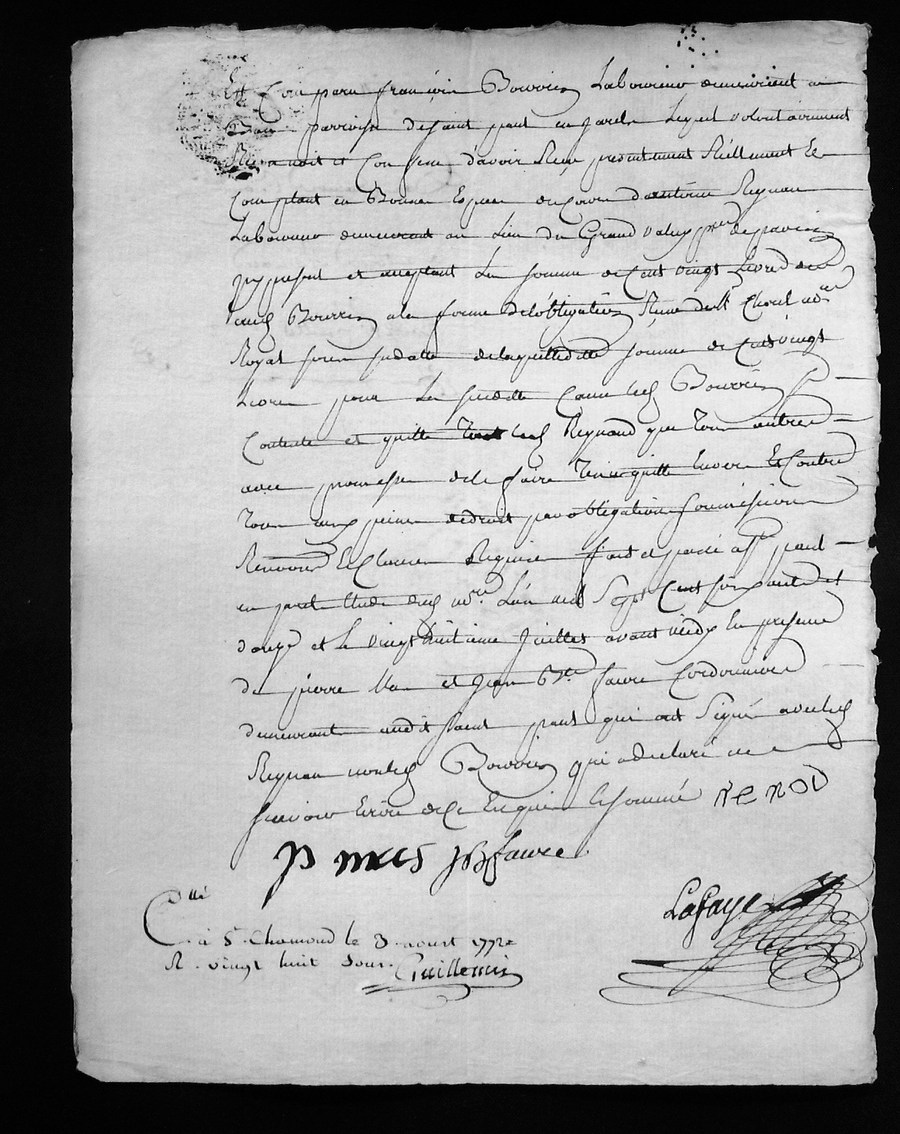 Est Comparu françois Bouvier Laboureur demeurant
parroisse de saint paul en jarets Lequel volontairement
et Confesse d'avoir Reçu presentement Réellement Et
Comptant en Bonnes Espèces de Cours d'antoine Reynau
Laboureur demeurant au Lieu du Grand valuy psse de pavezin
icy present et acceptant La somme de Cent vingt Livres
Bouvier a la forme de l'obligation Reçue de
Royal sous sa datte de laquelle ditte somme de Cent vingt
Livres pour La susditte Cause led Bouvier se
Contente et quitte led Reynaud que tous autres
avec promesse de le faire tenir quitte Envers Et Contre
tous aux peines de droit par obligation soumissions
Renonces Et Clauses Requises fait et passé a St paul
en jarets Etude dud nore L'an mil Sept Cent soixante et
douze et Le vingt huitieme Juillet avant midy En presence
de pierre Mas et Jean Bte faure Cordonniers
demeurant audit saint paul qui ont Signé avec led
Reynau non led Bouvier qui a declaré ne
scavoir Ecrire de ce Enquis et sommé re no v
p mas JB faure
Lafaye
Ctllé
à St Chamond le 3 aoust 1772
R. vingt huit sous Guillemin